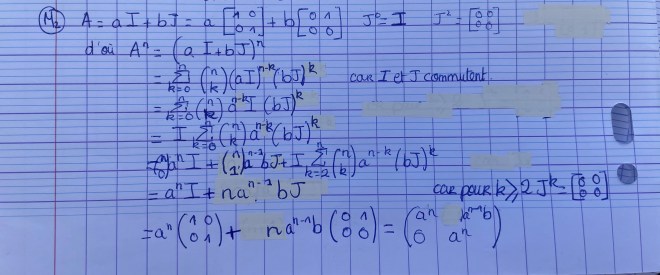 M₂ A = aI + bJ = a [1 0 0 1] + b [0 1 0 0] J⁰ = I J² = [0 0 0 0]
d'où Aⁿ = (a I + bJ)ⁿ
= Σ_{k=0}^{n} (n k) (aI)^{n-k} (bJ)^k car I et J commutent.
= Σ_{k=0}^{n} (n k) a^{n-k} I (bJ)^k
= I Σ_{k=0}^{n} (n k) a^{n-k} (bJ)^k
= (n 0) aⁿ I + (n 1) a^{n-1} bJ + I Σ_{k=2}^{n} (n k) a^{n-k} (bJ)^k
= aⁿ I + n a^{n-1} bJ car pour k ⩾ 2 J^k = [0 0 0 0]
= aⁿ (1 0 0 1) + n a^{n-1} b (0 1 0 0) = (aⁿ a^{n-1}b 0 aⁿ)